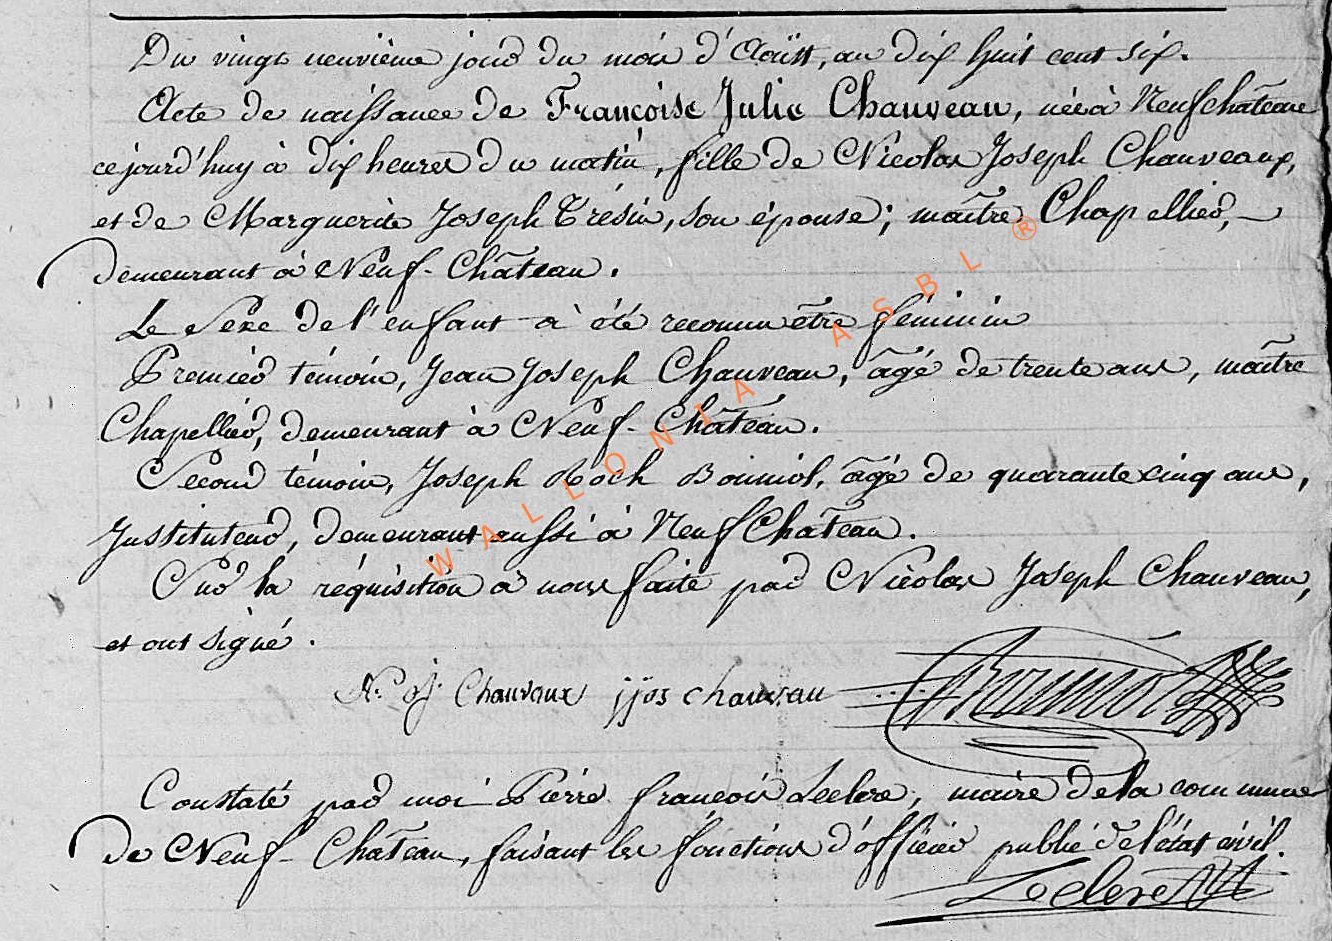 Du vingt neuvième jour du mois d'Août, an dix huit cent six.
Acte de naissance de Françoise Julie Chauveau, née à Neufchâteau
cejourd'huy à dix heures du matin, fille de Nicolas Joseph Chauveaux,
et de Marguerite Joseph Trésin, son épouse; maître Chapellier,
demeurant à Neuf-Château.
Le Sexe de l'enfant a été reconnu être féminin
Premier témoin, Jean Joseph Chauveau, âgé de trente ans, maître
Chapellier, demeurant à Neuf-Château.
Second témoin, Joseph Roch Bonniol, âgé de quarante cinq ans,
Instituteur, demeurant aussi à Neuf Château.
Sur la réquisition à nous faite par Nicolas Joseph Chauveau,
et ont signé.
N. J. Chauvaux jjos chauveau Bonniol
Constaté par moi Pierre françois Leclerc, maire de la commune
de Neuf-Château, faisant les fonctions d'officier public de l'état civil.
Leclerc
WALLONIA ASBL ®